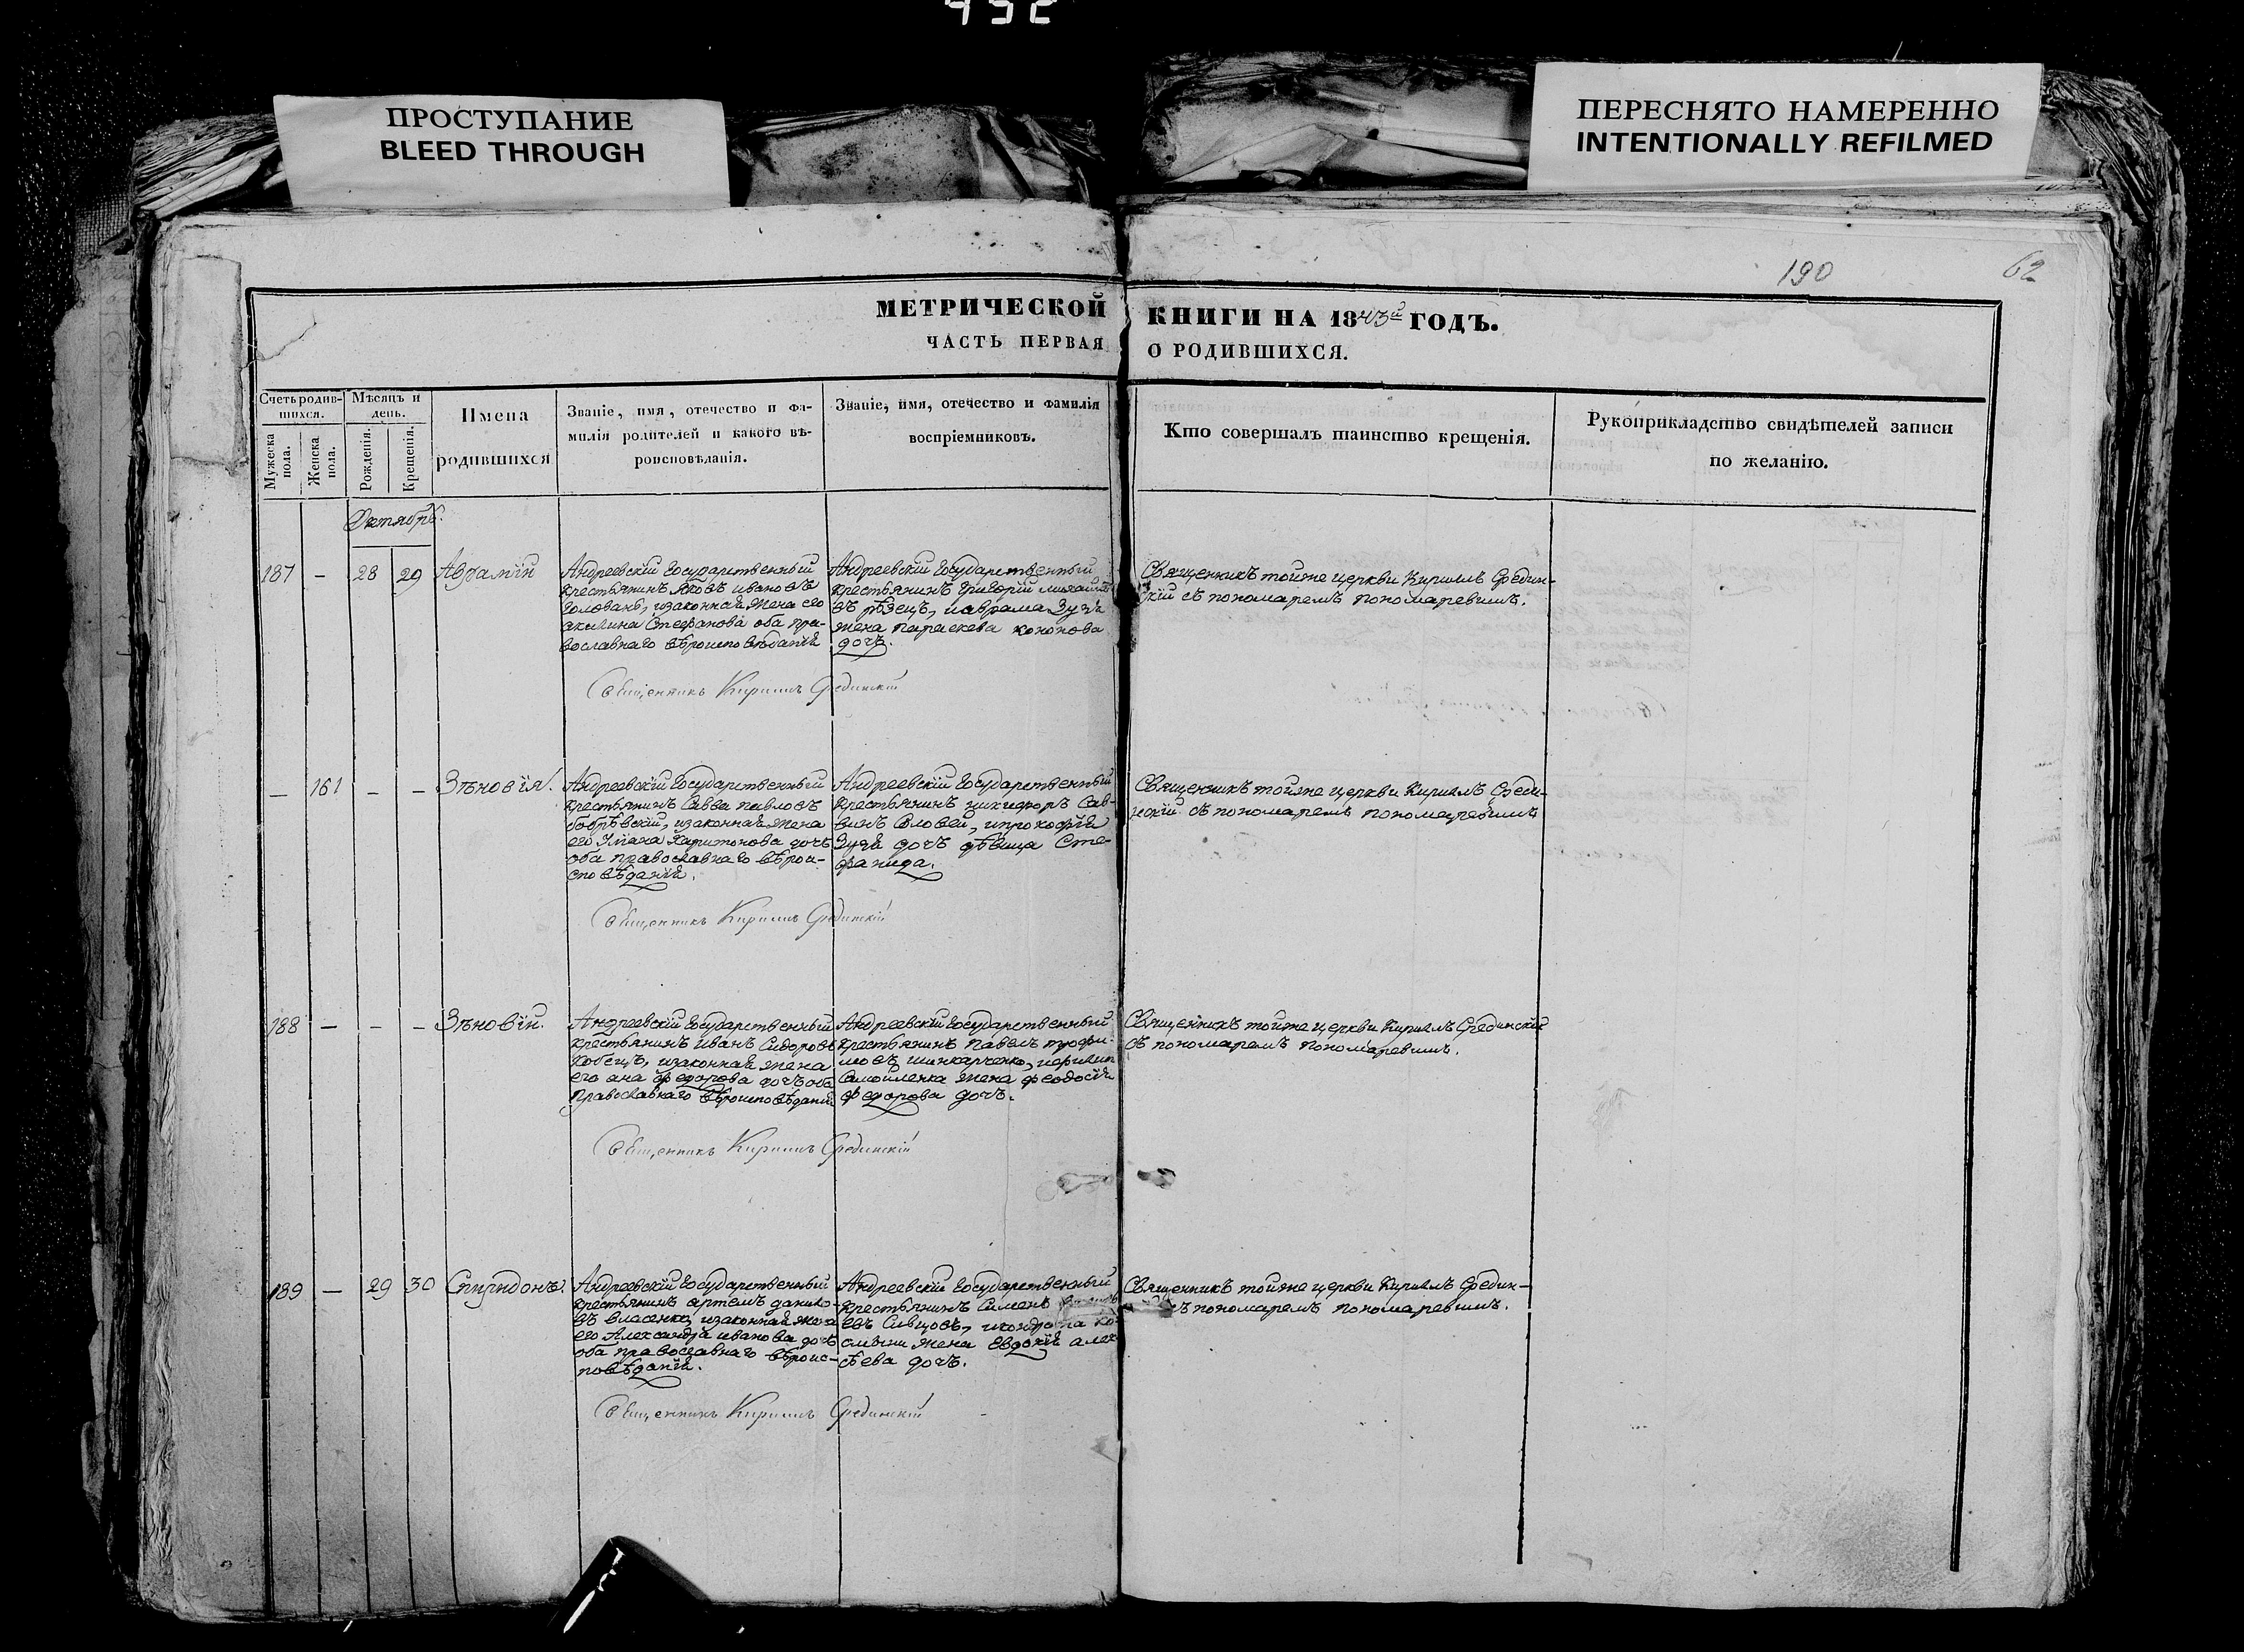 ПРОСТУПАНИЕ
BLEED THROUGH
ПЕРЕСНЯТО НАМЕРЕННО
INTENTIONALLY REFILMED
190
62
МЕТРИЧЕСКОЙ КНИГИ НА 1843й ГОДЪ.
ЧАСТЬ ПЕРВАЯ О РОДИВШИХСЯ.
Счетъ родив-
шихся.
Мужеска
пола.
Женска
пола.
Мѣсяцъ и
день.
Рожденія.
Крещенія.
Имена
родившихся
Званіе, имя, отечество и фа-
милія родителей и какого вѣ-
роисповѣданія.
Званіе, имя, отечество и фамилія
воспріемниковъ.
Кто совершалъ таинство крещенія.
Рукоприкладство свидѣтелей записи
по желанію.
Октябрь.
187 — 28 29 Аврамій
Андреевскій Государственный
крестьянинъ Яковъ ивановъ
Головань, изаконная жена его
акилина Стефанова оба пра-
вославнаго вѣроисповѣданія
Андреевскій Государственный
крестьянинъ Григорій михайло-
въ рѣзецъ, иаврама Зуя
жена параскева кононова
дочь.
Священникъ тойже церкви Кириллъ Средин-
скій съ пономаремъ пономаревымъ.
Священникъ Кириллъ Срединскій
— 161 — — Зѣновія.
Андреевскій Государственный
крестьянинъ Савва павловъ
бобрѣвскій, изаконная жена
его Уліана Харитонова дочь
оба православнаго вѣрои-
сповѣданія.
Андреевскій Государственный
крестьянинъ никифоръ Сав-
винъ Соловей, ипрокофія
Зуя дочь дѣвица Сте-
фанида.
Священникъ тойже церкви Кириллъ Среди-
нскій съ пономаремъ пономаревымъ
Священникъ Кириллъ Срединскій
188 — — — Зѣновій.
Андреевскій Государственный
крестьянинъ Иванъ Сидоровъ
Кобецъ, изаконная жена
его ана федорова дочь оба
Православнаго вѣроисповѣданія
Андреевскій Государственный
крестьянинъ Павелъ трофи-
мовъ шинкарченко, ифилип
Самойленка жена феодосія
федорова дочь.
Священникъ тойже церкви Кириллъ Срединскій
съ пономаремъ пономаревымъ.
Священникъ Кириллъ Срединскій
189 — 29 30 Спиридонъ.
Андреевскій Государственный
крестьянинъ артемъ данило-
въ власенко, изаконная жена
его Александра иванова дочь
оба православнаго вѣроис-
повѣданія.
Андреевскій Государственный
крестьянинъ Сименъ
евъ Сивцовъ,
жена Евдокія алек-
сѣева дочь.
Священникъ тойже церкви Кириллъ Средин-
съ пономаремъ пономаревымъ.
Священникъ Кириллъ Срединскій